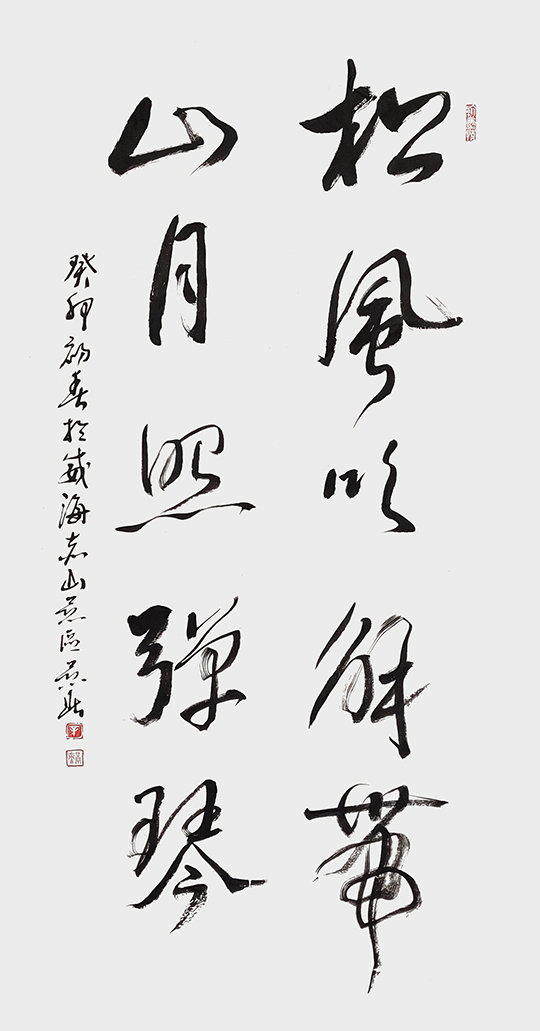 松風吹解帶
山月照彈琴
癸卯初春於威海赤山景區